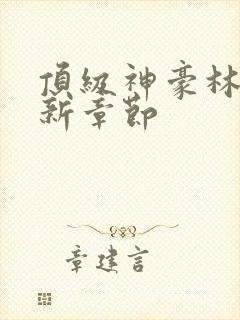 頂級神豪林
新章節
章建言